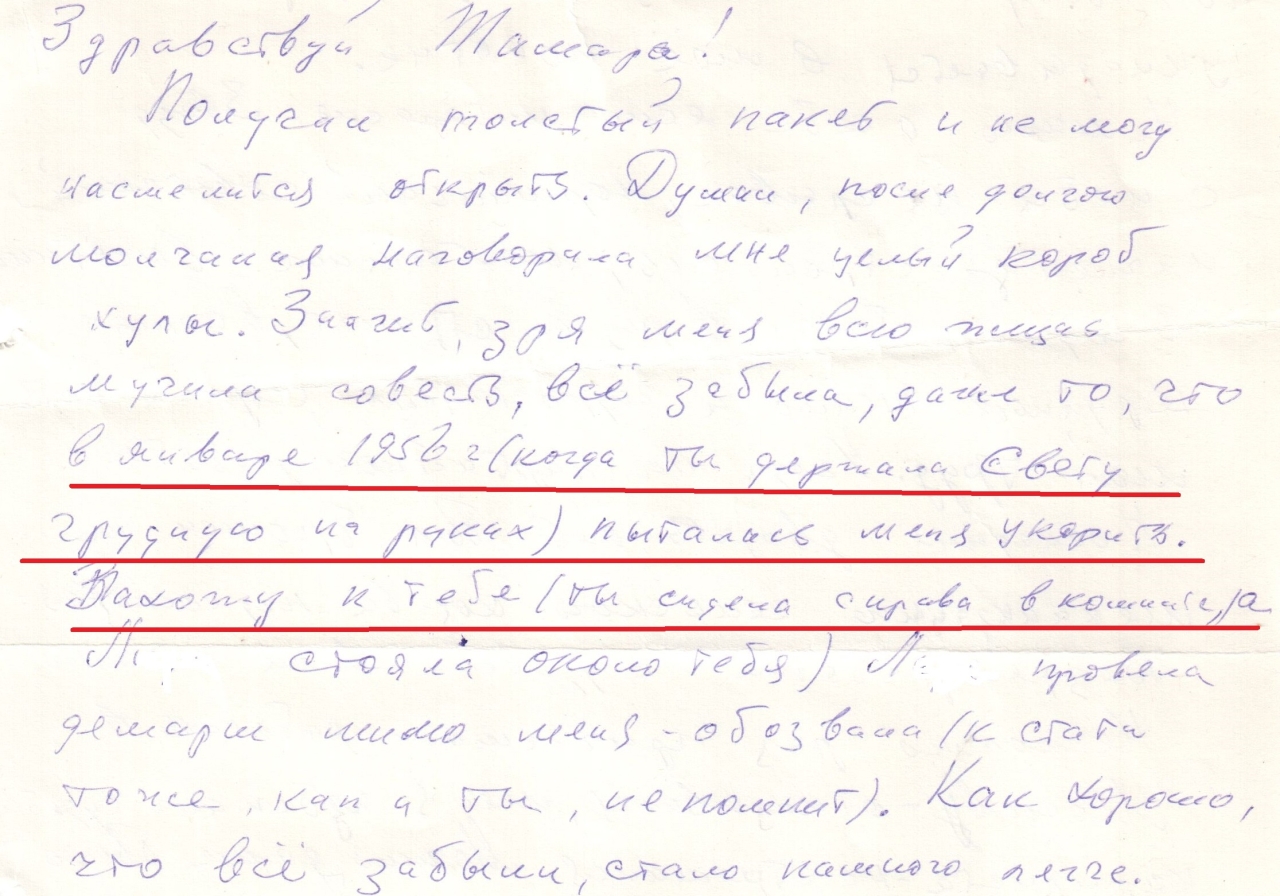 Здравствуй Тамара!
Получил толстый пакет и не могу
насмелится открыть. Думал, после долгого
молчания наговорила мне целый короб
хулы. Значит, зря меня всю жизнь
мучила совесть, всё забыла, даже то, что
в январе 1956 г (когда ты держала Свету
грудную на руках) пыталась меня укорить.
Захожу к тебе (ты сидела справа в комнате, а
стояла около тебя) провела
демарш мимо меня - обозвала (к стати
тоже, как и ты, не помнит). Как хорошо,
что всё забыли, стало намного легче.